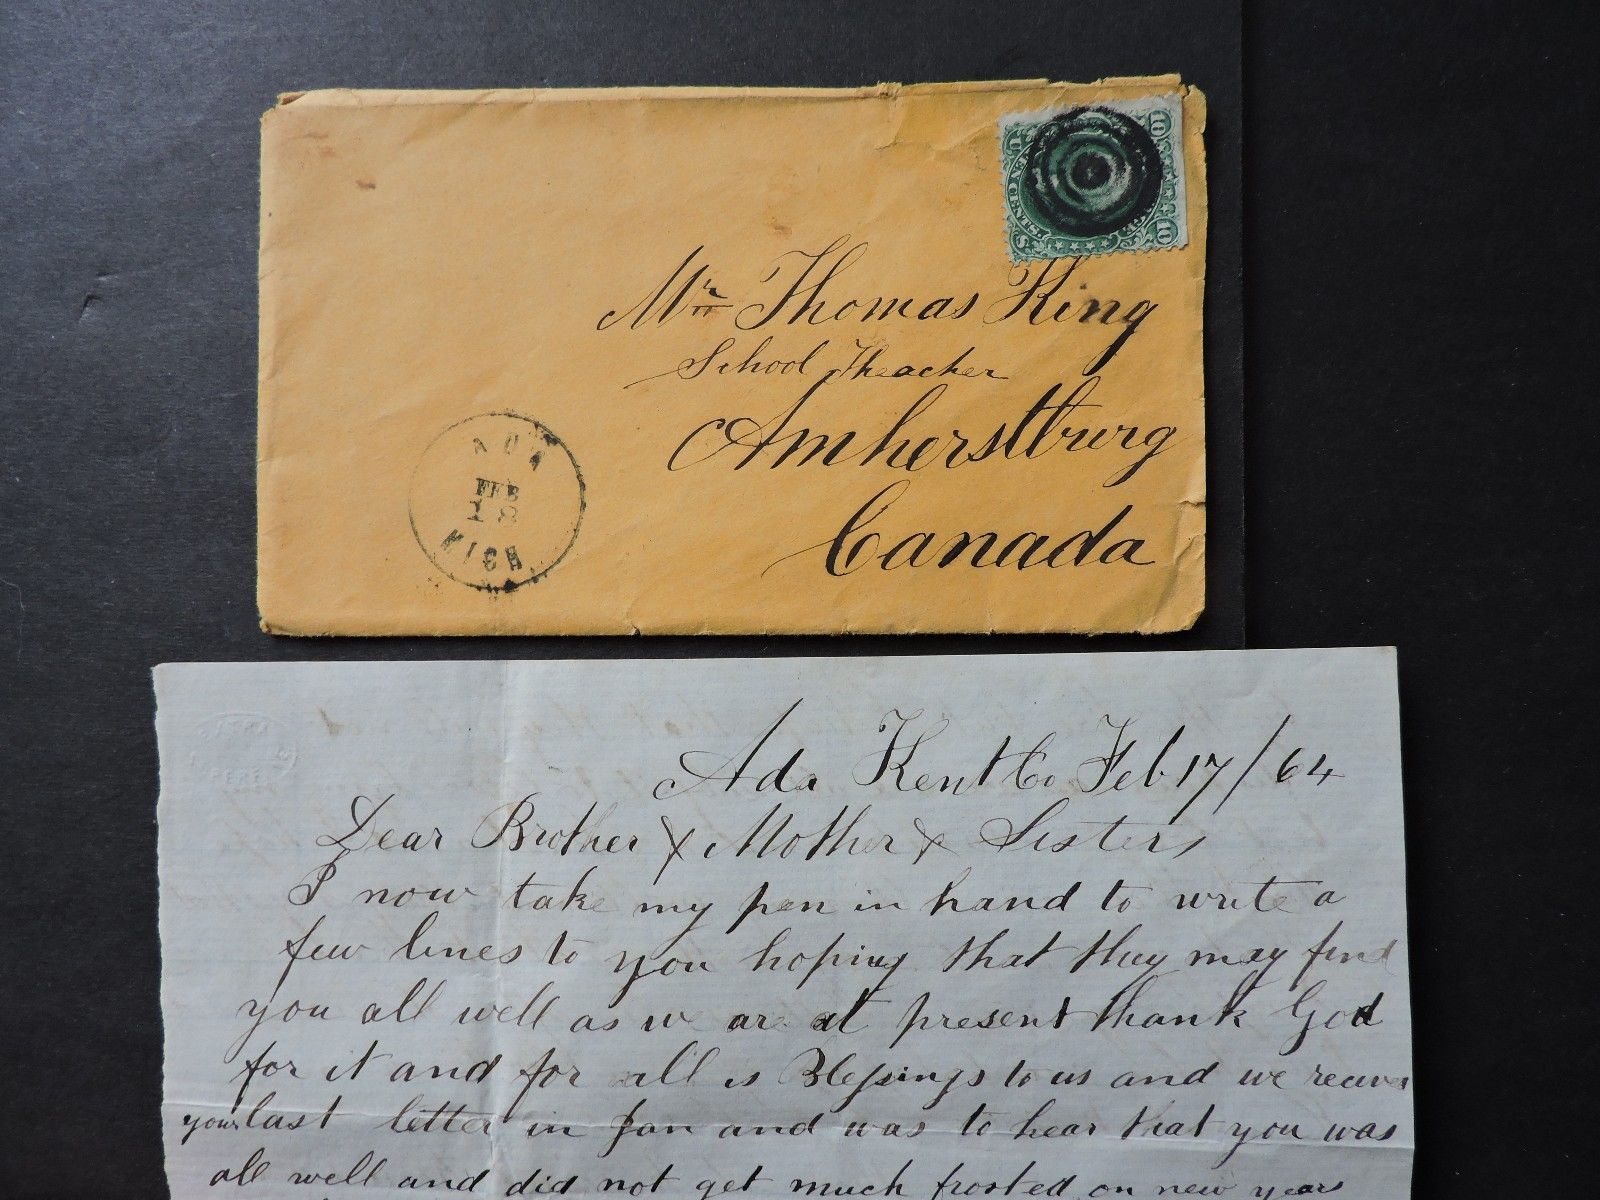 10
TEN CENTS.
10
U S
Mr Thomas King
School Theacher
Amherstburg
Canada
ADA
FEB
18
MICH
Ada Kent Co Feb 17/64
Dear Brother & Mother & Sisters
I now take my pen in hand to write a
few lines to you hoping that they may find
you all well as we are at present thank God
for it and for all is Blessings to us and we receive
your last letter in Jan and was to hear that you was
all well and did not get much frosted on new years